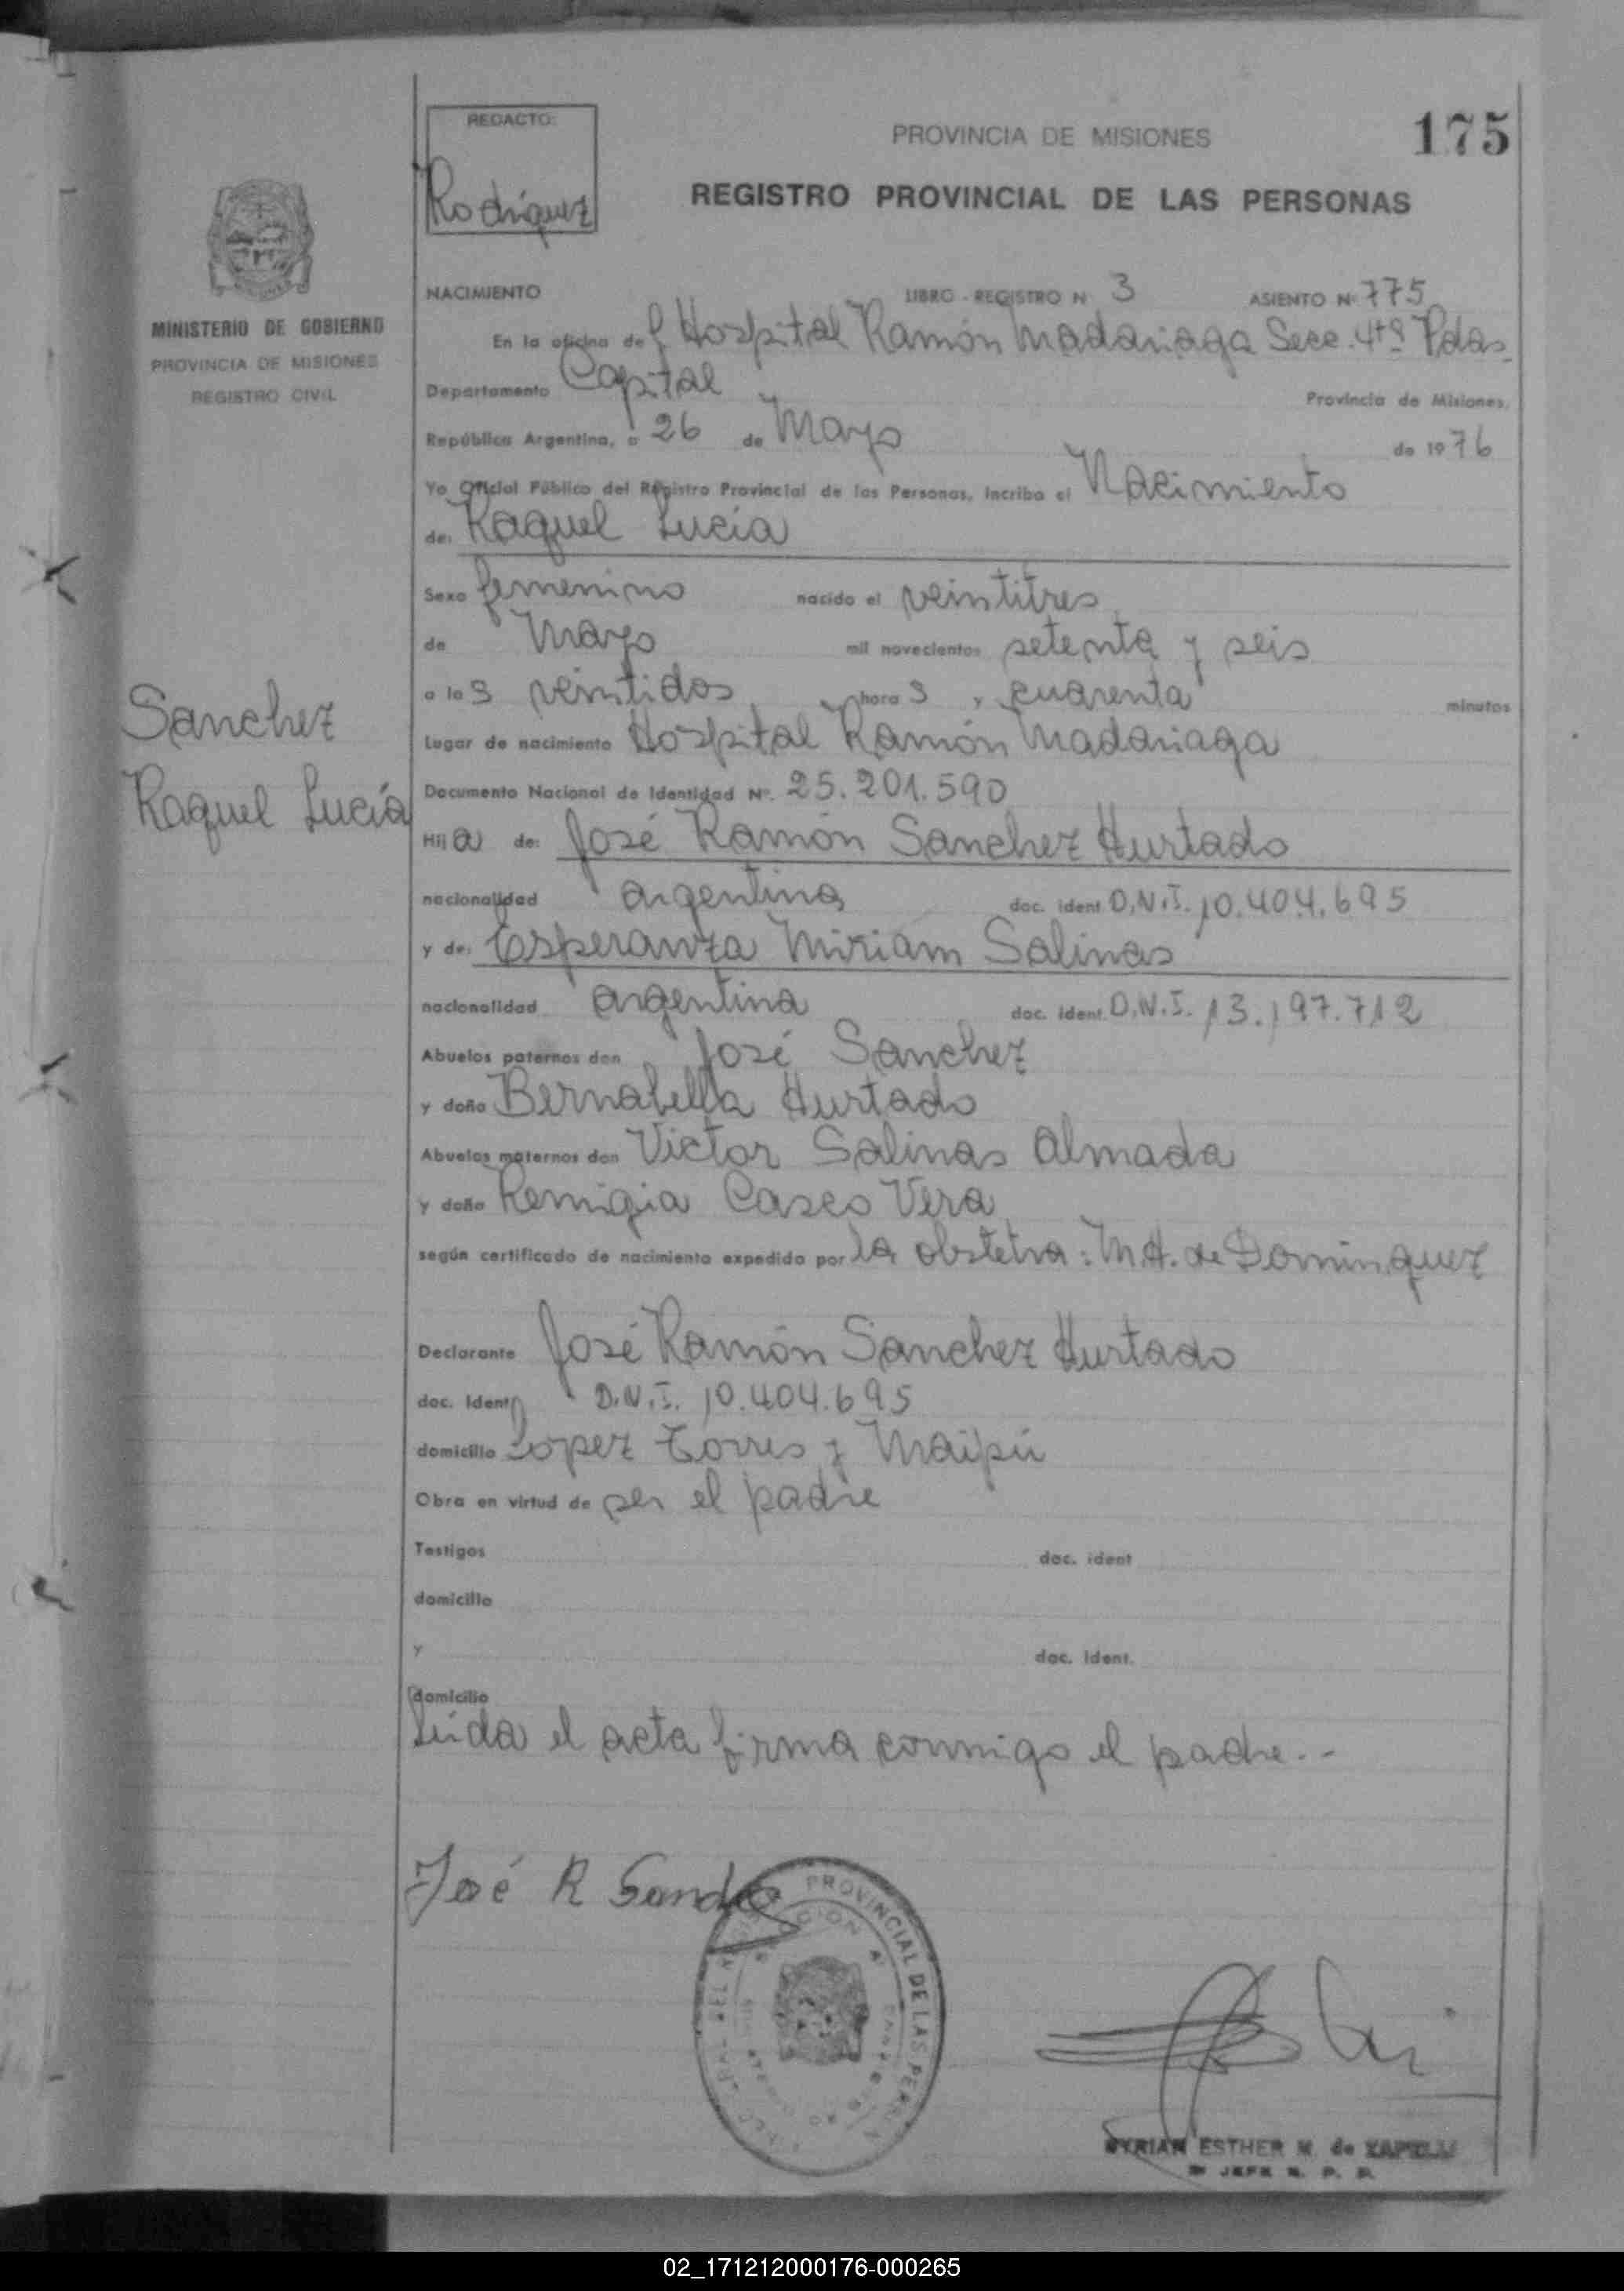 REDACTO:
Rodriguez
PROVINCIA DE MISIONES
175
REGISTRO PROVINCIAL DE LAS PERSONAS
MINISTERIO DE GOBIERNO
PROVINCIA DE MISIONES
REGISTRO CIVIL
NACIMIENTO LIBRO - REGISTRO N 3 ASIENTO Nº 775
En la oficina del Hospital Ramón Madariaga Secc. 4tª Pdas.
Departamento Capital Provincia de Misiones,
República Argentina, a 26 de Mayo de 1976
Yo Oficial Público del Registro Provincial de las Personas, inscribo el Nacimiento
de: Raquel Lucía
Sexo femenino nacido el veintitres
de Mayo mil novecientos setenta y seis
a las veintidos horas y cuarenta minutos
Sanchez
Raquel Lucía
Lugar de nacimiento Hospital Ramón Madariaga
Documento Nacional de Identidad Nº. 25.201.590
Hija de: José Ramón Sanchez Hurtado
nacionalidad argentina doc. ident D.N.I. 10.404.695
y de: Esperanza Miriam Salinas
nacionalidad argentina doc. ident. D.N.I. 13.197.712
Abuelos paternos don José Sanchez
y doña Bernabella Hurtado
Abuelos maternos don Victor Salinas Almada
y doña Remigia Casco Vera
según certificado de nacimiento expedido por la obstetra: M.H. de Dominguez
Declarante José Ramón Sanchez Hurtado
doc. Ident D.N.I. 10.404.695
domicilio Lopez Torres y Maipú
Obra en virtud de ser el padre
Testigos doc. ident
domicilio
y doc. ident.
domicilio
Leida el acta firma conmigo el padre.-
José R Sanchez
PROVINCIAL DE LAS PERS
MYRIAN ESTHER M. de ZAPELLI
JEFE R. P. P.
02_171212000176-000265